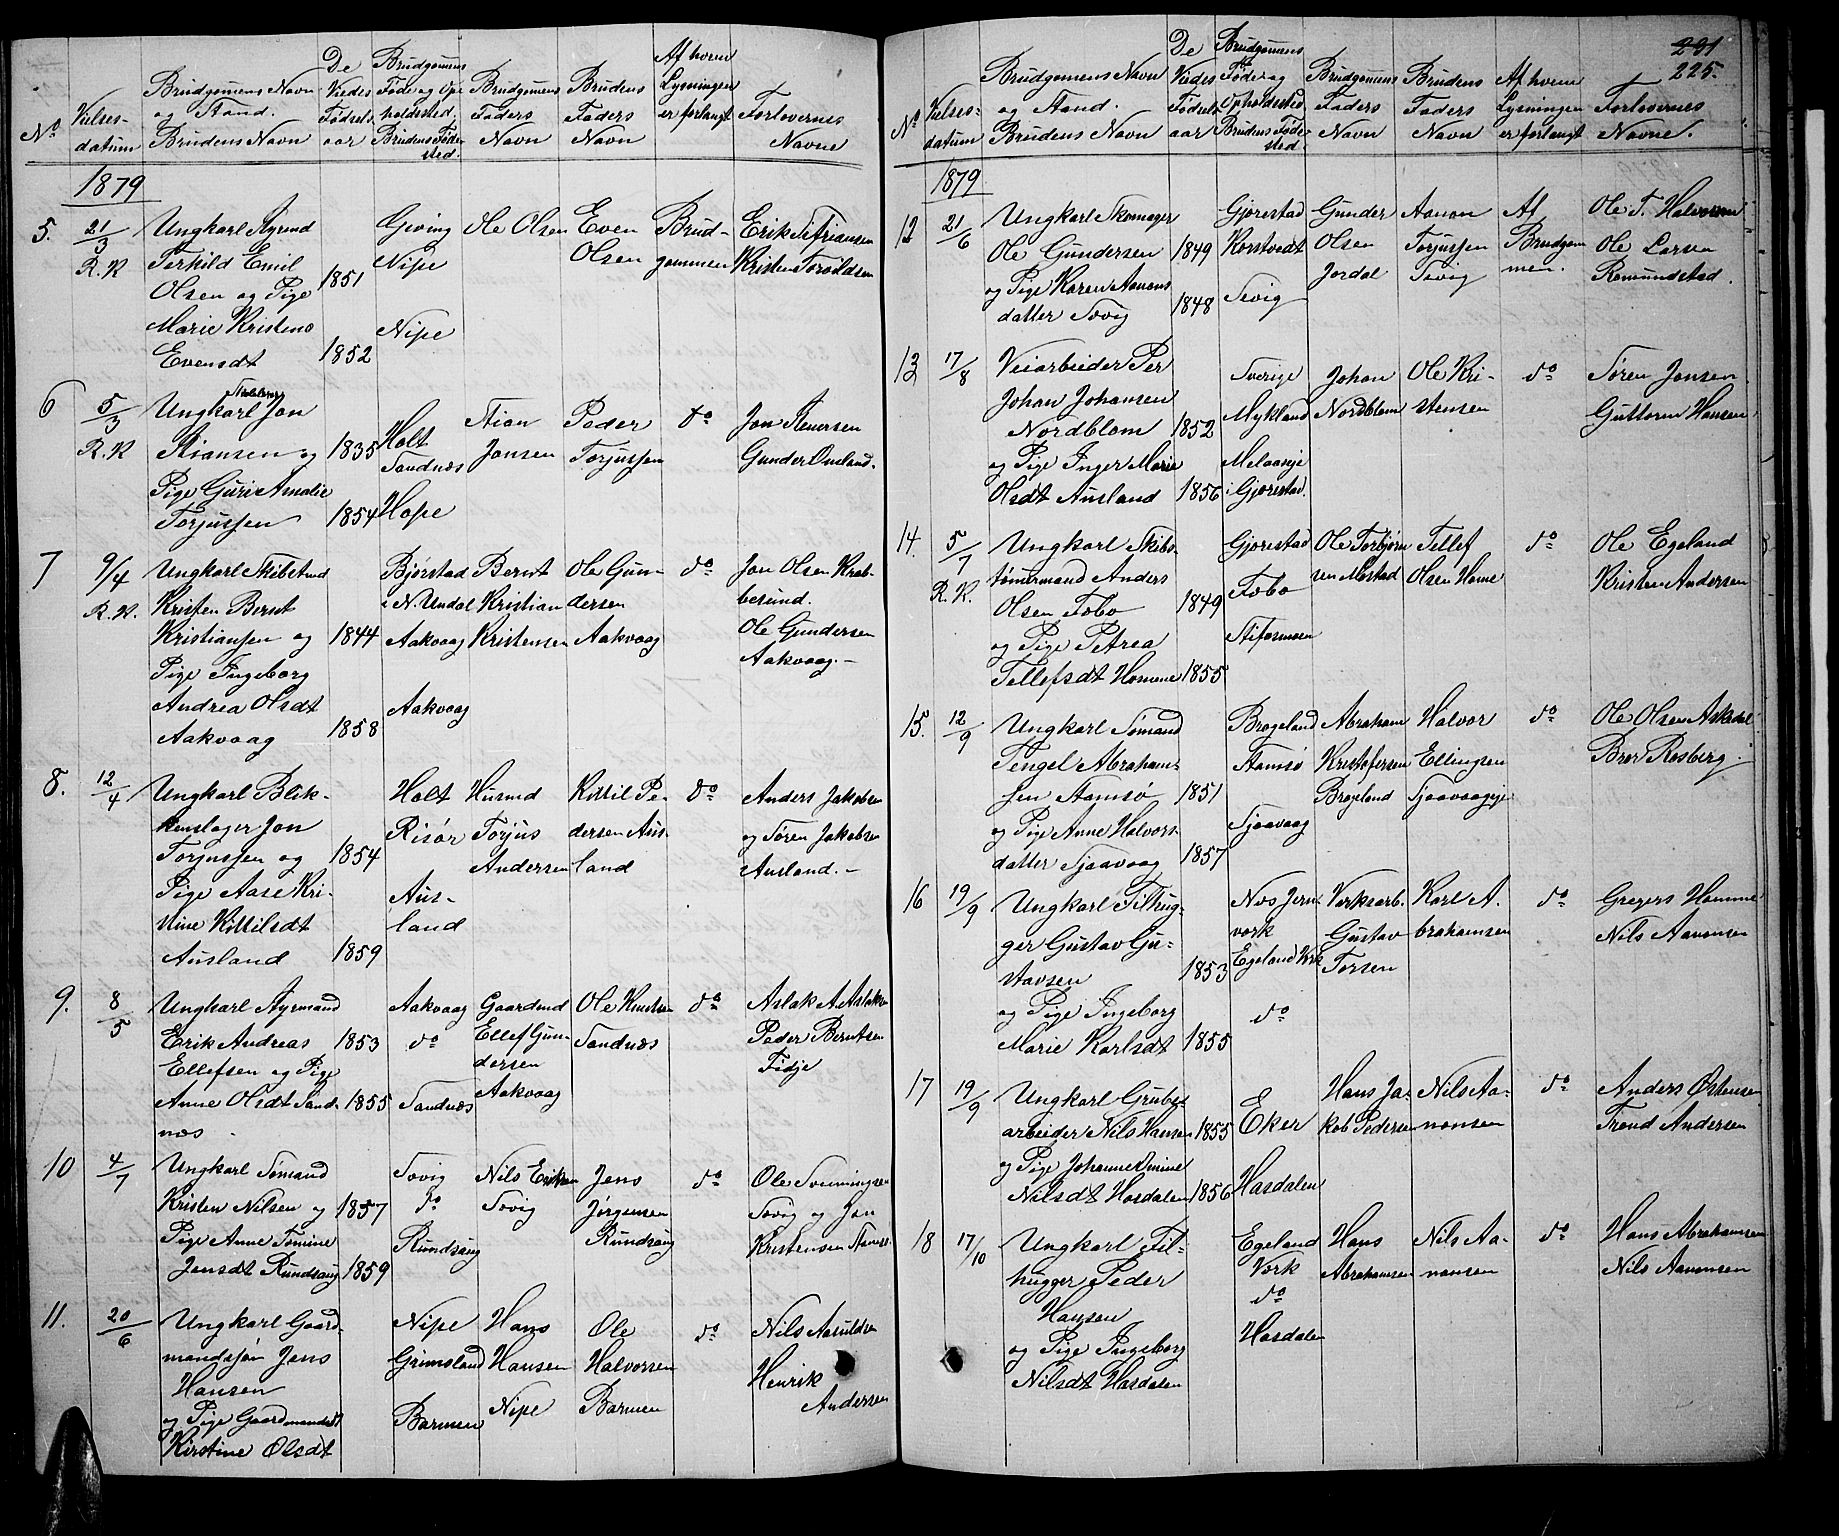 No
Vielses-
datum
Brudgomens Navn
og Stand.
Brudens Navn
De
Viedes
Fødsels-
aar
Brudgomens
Føde og Op-
holdssted,
Brudens Føde-
sted.
Brudgomens
Faders
Navn
Brudens
Faders
Navn
Af hvem
Lysningen
er forlangt
Forlovernes
Navne
1879
5.
21/3
R. K
Ungkarl Styrmd
Terkild Emil
Olsen og Pige
Marie Kristens
Evensdt
1851
1852
Gjeving
Nipe
Nipe
Ole Olsen
Even
Olsen
Brud-
gommen
Erik
Kristen Torvildsen
6
5/3
R. K
Ungkarl Jon
Stiansen og
Pige Guri Amalie
Torjussen
1835
1854
Holt
Sandnæs
Hope
Stian
Jonsen
Peder
Torjussen
do
Jon Stenersen
Gunder Omland.
7
9/4
R. K.
Ungkarl Skibstmd
Kristen Bernt
Kristiansen og
Pige Ingeborg
Andrea Olsdt
Aakvaag
1844
1858
Bjørstad
i N. Undal
Aakvaag
Aakvaag
Bernt
Kristian
Kristensen
Ole Gun-
dersen
Aakvaag
do
Jon Olsen Krab-
besund.
Ole Gundersen
Aakvaag.-
8.
12/4
Ungkarl Blik-
kenslager Jon
Torjussen og
Pige Aase Kri-
stine Kittilsdt
Ausland
1854
1859
Holt
Risør
Aus-
land
Husmd
Torjus
Andersen
Kittil Pe-
dersen Aus-
land
do
Anders Jakobsen
og Søren Jakobsen
Ausland.-
9.
8/5
Ungkarl Styrmand
Erik Andreas
Ellefsen og Pige
Anne Olsdt Sand-
næs
1853
1855
Aakvaag
do
Sandnæs
Gaardmd
Ellef Gun-
dersen
Aakvaag
Ole Knudsen
Sandnæs
do
Aslak A Aslaksen
Peder Berntsen
Fidje
10
4/7
Ungkarl Sømand
Kristen Nilsen og
Pige Anne Tomine
Jensdt Rundsaug
1857
1859
Sævig
do
Rundsaug
Nils Eriksen
Sævig
Jens
Jørgensen
Rundsaug
do
Ole Sveinungsen
Sævig og Jon
Kristensen
11.
20/6
Ungkarl Gaard-
mandssøn Jens
Hansen
og Pige Gaardmandsdt
Kirstine Olsdt
Nipe
Grimsland
Barmen
Hans
Hansen
Nipe
Ole
Halvorsen
Barmen
do
Nils Aanuldsen
Henrik
Andersen
231
225.
No
Vielses-
datum
Brudgomens Navn
og Stand.
Brudens Navn
De
Viedes
Fødsels-
aar
Brudgomens
Føde og
Opholdssted,
Brudens Føde-
sted.
Brudgomens
Faders
Navn
Brudens
Faders
Navn
Af hvem
Lysningen
er forlangt
Forlovernes
Navne.
1879
12
21/6
Ungkarl Skomager
Ole Gundersen
og Pige Karen Aanons
datter Sævig
1849
1848
Gjerestad
Korstvedt
Sevig
Gunder
Olsen
Jordal
Aanon
Torjussen
Sevig
Af
Brudgom
men.
Ole T. Halvorsen
Ole Larsen
Romundstad.
13
17/8
Veiarbeider Per
Johan Johansen
Nordblom
og Pige Inger Marie
Olsdt Ausland
1852
1856
Sverige
Mykland
Melaaseje
i Gjerestad.
Johan
Nordblom
Ole Kri-
stensen
do
Søren Jensen
Guttorm Hansen
14.
5/7
R. K.
Ungkarl Skibs-
tømermand Anders
Olsen Fobo
og Pige Petrea
Tellefsdt Homme
1849
1855
Gjerestad
Fobo
Stifosmoen
Ole Torbjørn
sen Mostad
Tellef
Olsen Home
do
Ole Egeland
Kristen Andersen
15.
12/9
Ungkarl Sømand
Tengel Abraham-
sen Stamsø
og Pige Anne Halvors-
datter Sjaavaag
1851
1857
Brageland
Stamsø
Sjaavaag
Abraham
Kristofersen
Brageland
Halvor
Ellingsen
Sjaavaageje
do
Ole Olsen Askedal
Bror Rosberg.
16
19/9
Ungkarl Filhug-
ger Gustav Gu-
stavsen
og Pige Ingeborg
Marie Karlsdt
1853
1855
Næs Jern
værk
Egeland Værk
do
Værksarb.
Gustav
Torsen
Karl A-
brahamsen
do
Gregers Homme
Nils Aanonsen
17
19/9
Ungkarl Grube-
arbeider Nils Hansen
og Pige Johanne Omine
Nilsdt Hasdalen
1855
1856
Eker
Hasdalen
Hans Ja-
kob Pedersen
Nils Aa-
nonsen
do
Anders Østensen
Trond Andersen
18
17/10
Ungkarl Fil-
hugger Peder
Hansen
og Pige Ingeborg
Nilsdt Hasdalen
Egeland
Værk
do
Hasdalen
Hans
Abrahamsen
Nils Aa-
nonsen
do
Hans Abrahamsen
Nils Aanonsen